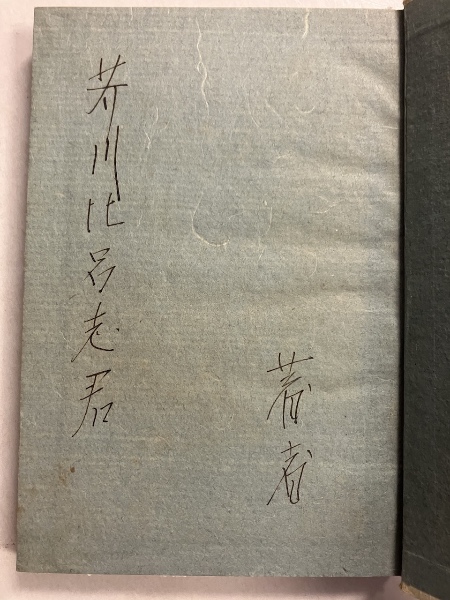 芥川比呂志君
著者